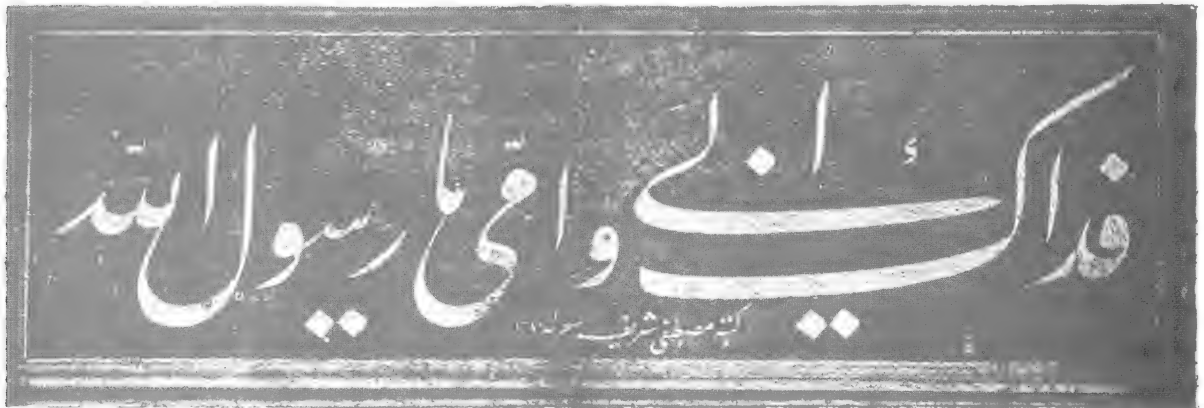 فداك ابي وامي يا رسول الله
كتبه مصطفى شريف